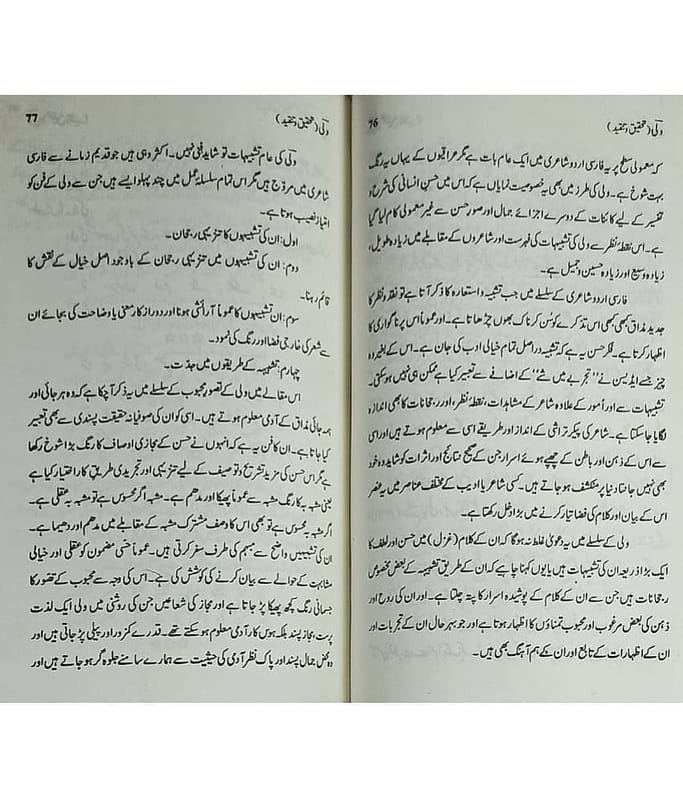 ولی (تحقیق و تنقید)
76
کہ معمولی سطح پر یہ فارسی اردو شاعری میں ایک عام بات ہے مگر عراقیوں کے یہاں یہ رنگ
بہت شوخ ہے۔ ولی کی طرز میں بھی یہ خصوصیت نمایاں ہے کہ اس میں حسنِ انسانی کی شرح و
تفسیر کے لیے کائنات کے دوسرے اجزائے جمال اور صورِ حسن سے غیر معمولی کام لیا گیا
ہے۔ اس نقطۂ نظر سے ولی کی تشبیہات کی فہرست اور شاعروں کے مقابلے میں زیادہ طویل،
زیادہ وسیع اور زیادہ حسین و جمیل ہے۔
فارسی اردو شاعری کے سلسلے میں جب تشبیہ و استعارہ کا ذکر آتا ہے تو نقد و نظر کا
جدید مذاق کبھی کبھی اس تذکرے کو سُن کر ناک بھوں چڑھاتا ہے۔ اور عموماً اس پر ناگواری کا
اظہار کرتا ہے۔ فکر حسن یہ ہے کہ تشبیہ در اصل تمام خیالی ادب کی جان ہے۔ اس کے بغیر وہ
چیز جسے ایڈیسن نے ”تجربے میں شے“ کے اضافے سے تعبیر کیا ہے ممکن ہی نہیں ہو سکتی۔
تشبیہات سے اور اُمور کے علاوہ شاعر کے مشاہدات، نقطۂ نظر، اور رجحانات کا بھی اندازہ
لگایا جا سکتا ہے۔ شاعر کی پیکر تراشی کے انداز اور طریقے اسی سے معلوم ہوتے ہیں اور اسی
سے اس کے ذہن اور باطن کے چھپے ہوئے اسرار جن کے صحیح نتائج اور اثرات کو شاید وہ خود
بھی نہیں جانتا دنیا پر منکشف ہو جاتے ہیں۔ کسی شاعر یا ادیب کے مختلف عناصر میں یہ عنصر
اس کے بیان اور کلام کی فضا تیار کرنے میں بڑا دخل رکھتا ہے۔
ولی کے سلسلے میں یہ دعویٰ غلط نہ ہوگا کہ ان کے کلام (غزل) میں حسن اور لطف کا
ایک بڑا ذریعہ ان کی تشبیہات ہیں یا یوں کہنا چاہیے کہ ان کے طریقِ تشبیہہ کے بعض مخصوص
رجحانات ہیں جن سے ان کے کلام کے پوشیدہ اسرار کا پتہ چلتا ہے۔ اور ان کی روح اور
ذہن کی بعض مرغوب اور محبوب تمناؤں کا اظہار ہوتا ہے اور جو بہر حال ان کے تجربات اور
ان کے اظہارات کے تابع اور ان کے ہم آہنگ بھی ہیں۔
ولی (تحقیق و تنقید)
77
ولی کی عام تشبیہات تو شاید فنی نہیں۔ اکثر وہی ہیں جو قدیم زمانے سے فارسی
شاعری میں مروّج ہیں مگر اس تمام سلسلۂ عمل میں چند پہلو ایسے ہیں جن سے ولی کے فن کو
امتیاز نصیب ہوتا ہے۔
اول: ان کی تشبیہوں کا تنزیہی رجحان۔
دوم: ان کی تشبیہوں میں تنزیہی رجحان کے باوجود اصل خیال کے نقش کا
قائم رہنا۔
سوم: ان تشبیہوں کا عموماً آرائشی ہونا اور دور از کار معنی یا وضاحت کی بجائے ان
سے شعر کی خارجی فضا اور رنگ کی نمود۔
چہارم: تشبیہہ کے طریقوں میں جدت۔
اس مقالے میں ولی کے تصورِ محبوب کے سلسلے میں یہ ذکر آ چکا ہے کہ وہ ہر جائی اور
ہمہ جائی مذاق کے آدمی معلوم ہوتے ہیں۔ اسی کو ان کی صوفیانہ حقیقت پسندی سے بھی تعبیر
کیا جاتا ہے۔ ان کا فن یہ ہے کہ انہوں نے حسن کے مجازی اوصاف کا رنگ بڑا شوخ رکھا
ہے مگر اس حسن کی مزید تشریح و توصیف کے لیے تنزیہی اور تجریدی طریقِ کار اختیار کیا ہے
یعنی مشبہ بہ کا رنگ مشبہ سے عموماً پھیکا اور مدھم ہے۔ مشبہ اگر محسوس ہے تو مشبہ بہ عقلی ہے۔
اگر مشبہ بہ محسوس ہے تو بھی اس کا وصفِ مشترک مشبہ کے مقابلے میں مدھم اور دھیما ہے۔
ان کی تشبیہیں واضح سے مبہم کی طرف سفر کرتی ہیں۔ عموماً حسی مضمون کو عقلی اور خیالی
مشابہت کے حوالے سے بیان کرنے کی کوشش کی ہے۔ اس کی وجہ سے محبوب کے تصور کا
جسمانی رنگ کچھ پھیکا پڑ جاتا ہے اور مجاز کی شعاعیں جن کی روشنی میں ولی ایک لذت
پرست مجاز پسند بلکہ ہوس کار آدمی معلوم ہو سکتے تھے۔ قدرے کمزور اور پتلی پڑ جاتی ہیں اور
وہ محض جمال پسند اور پاک نظر آدمی کی حیثیت سے ہمارے سامنے جلوہ گر ہو جاتے ہیں اور